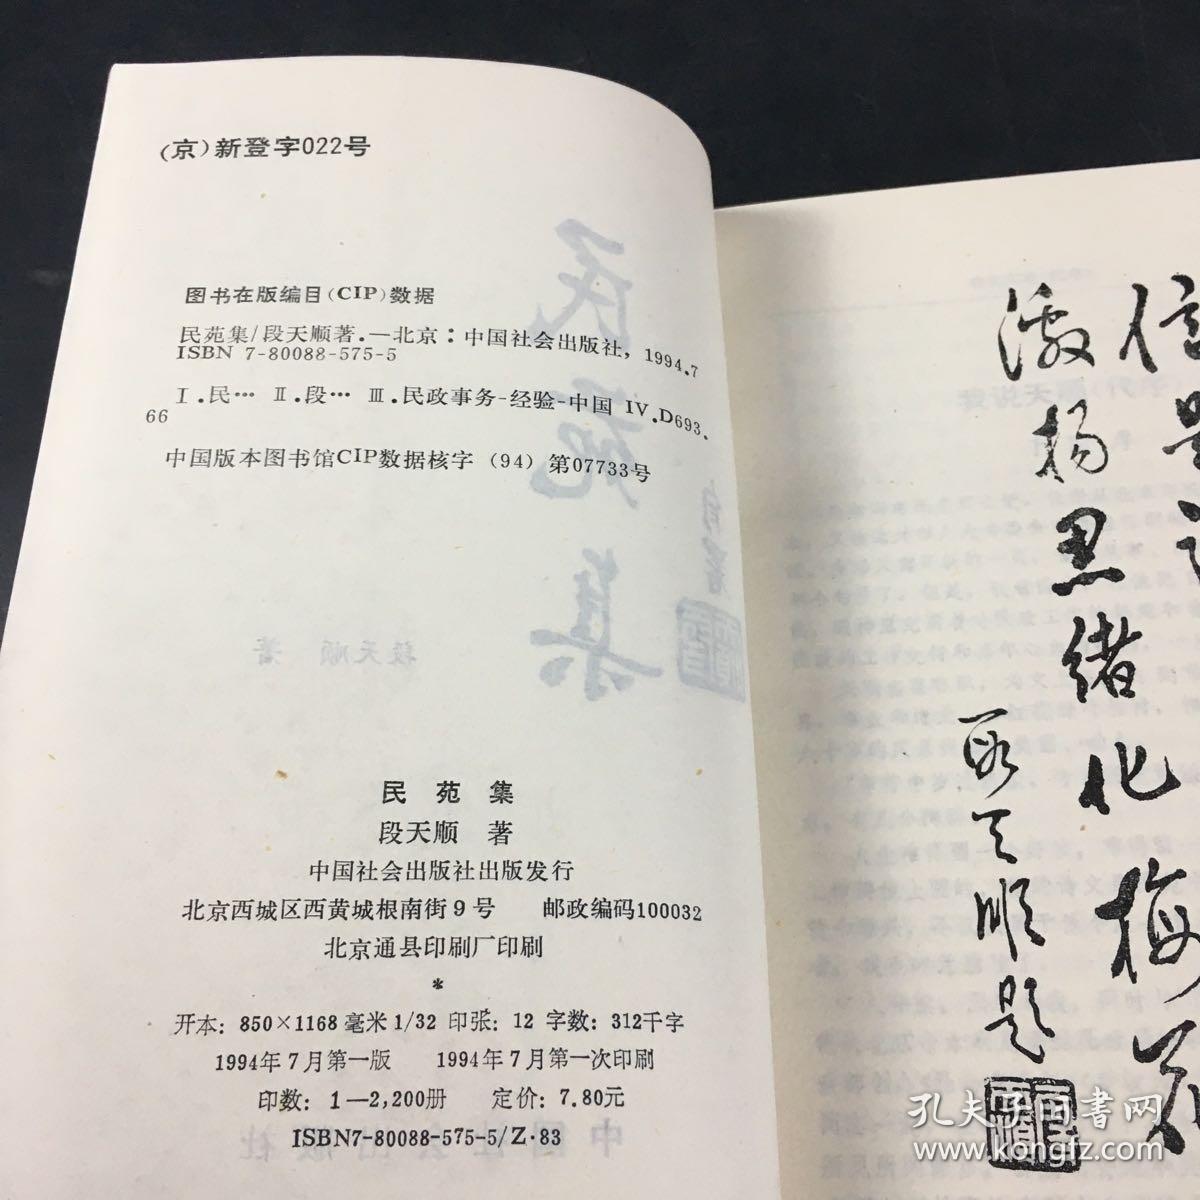 (京)新登字022号
图书在版编目(CIP)数据
民苑集/段天顺著.—北京：中国社会出版社，1994.7
ISBN 7-80088-575-5
Ⅰ.民… Ⅱ.段… Ⅲ.民政事务-经验-中国 Ⅳ.D693.
66
中国版本图书馆CIP数据核字 (94) 第07733号
民苑集
段天顺 著
中国社会出版社出版发行
北京西城区西黄城根南街9号 邮政编码100032
北京通县印刷厂印刷
*
开本: 850×1168毫米1/32 印张: 12 字数: 312千字
1994年7月第一版 1994年7月第一次印刷
印数: 1—2,200册 定价: 7.80元
ISBN7-80088-575-5/Z·83
激杨思绪化梅花
段天顺题
孔夫子旧书网
www.kongfz.com